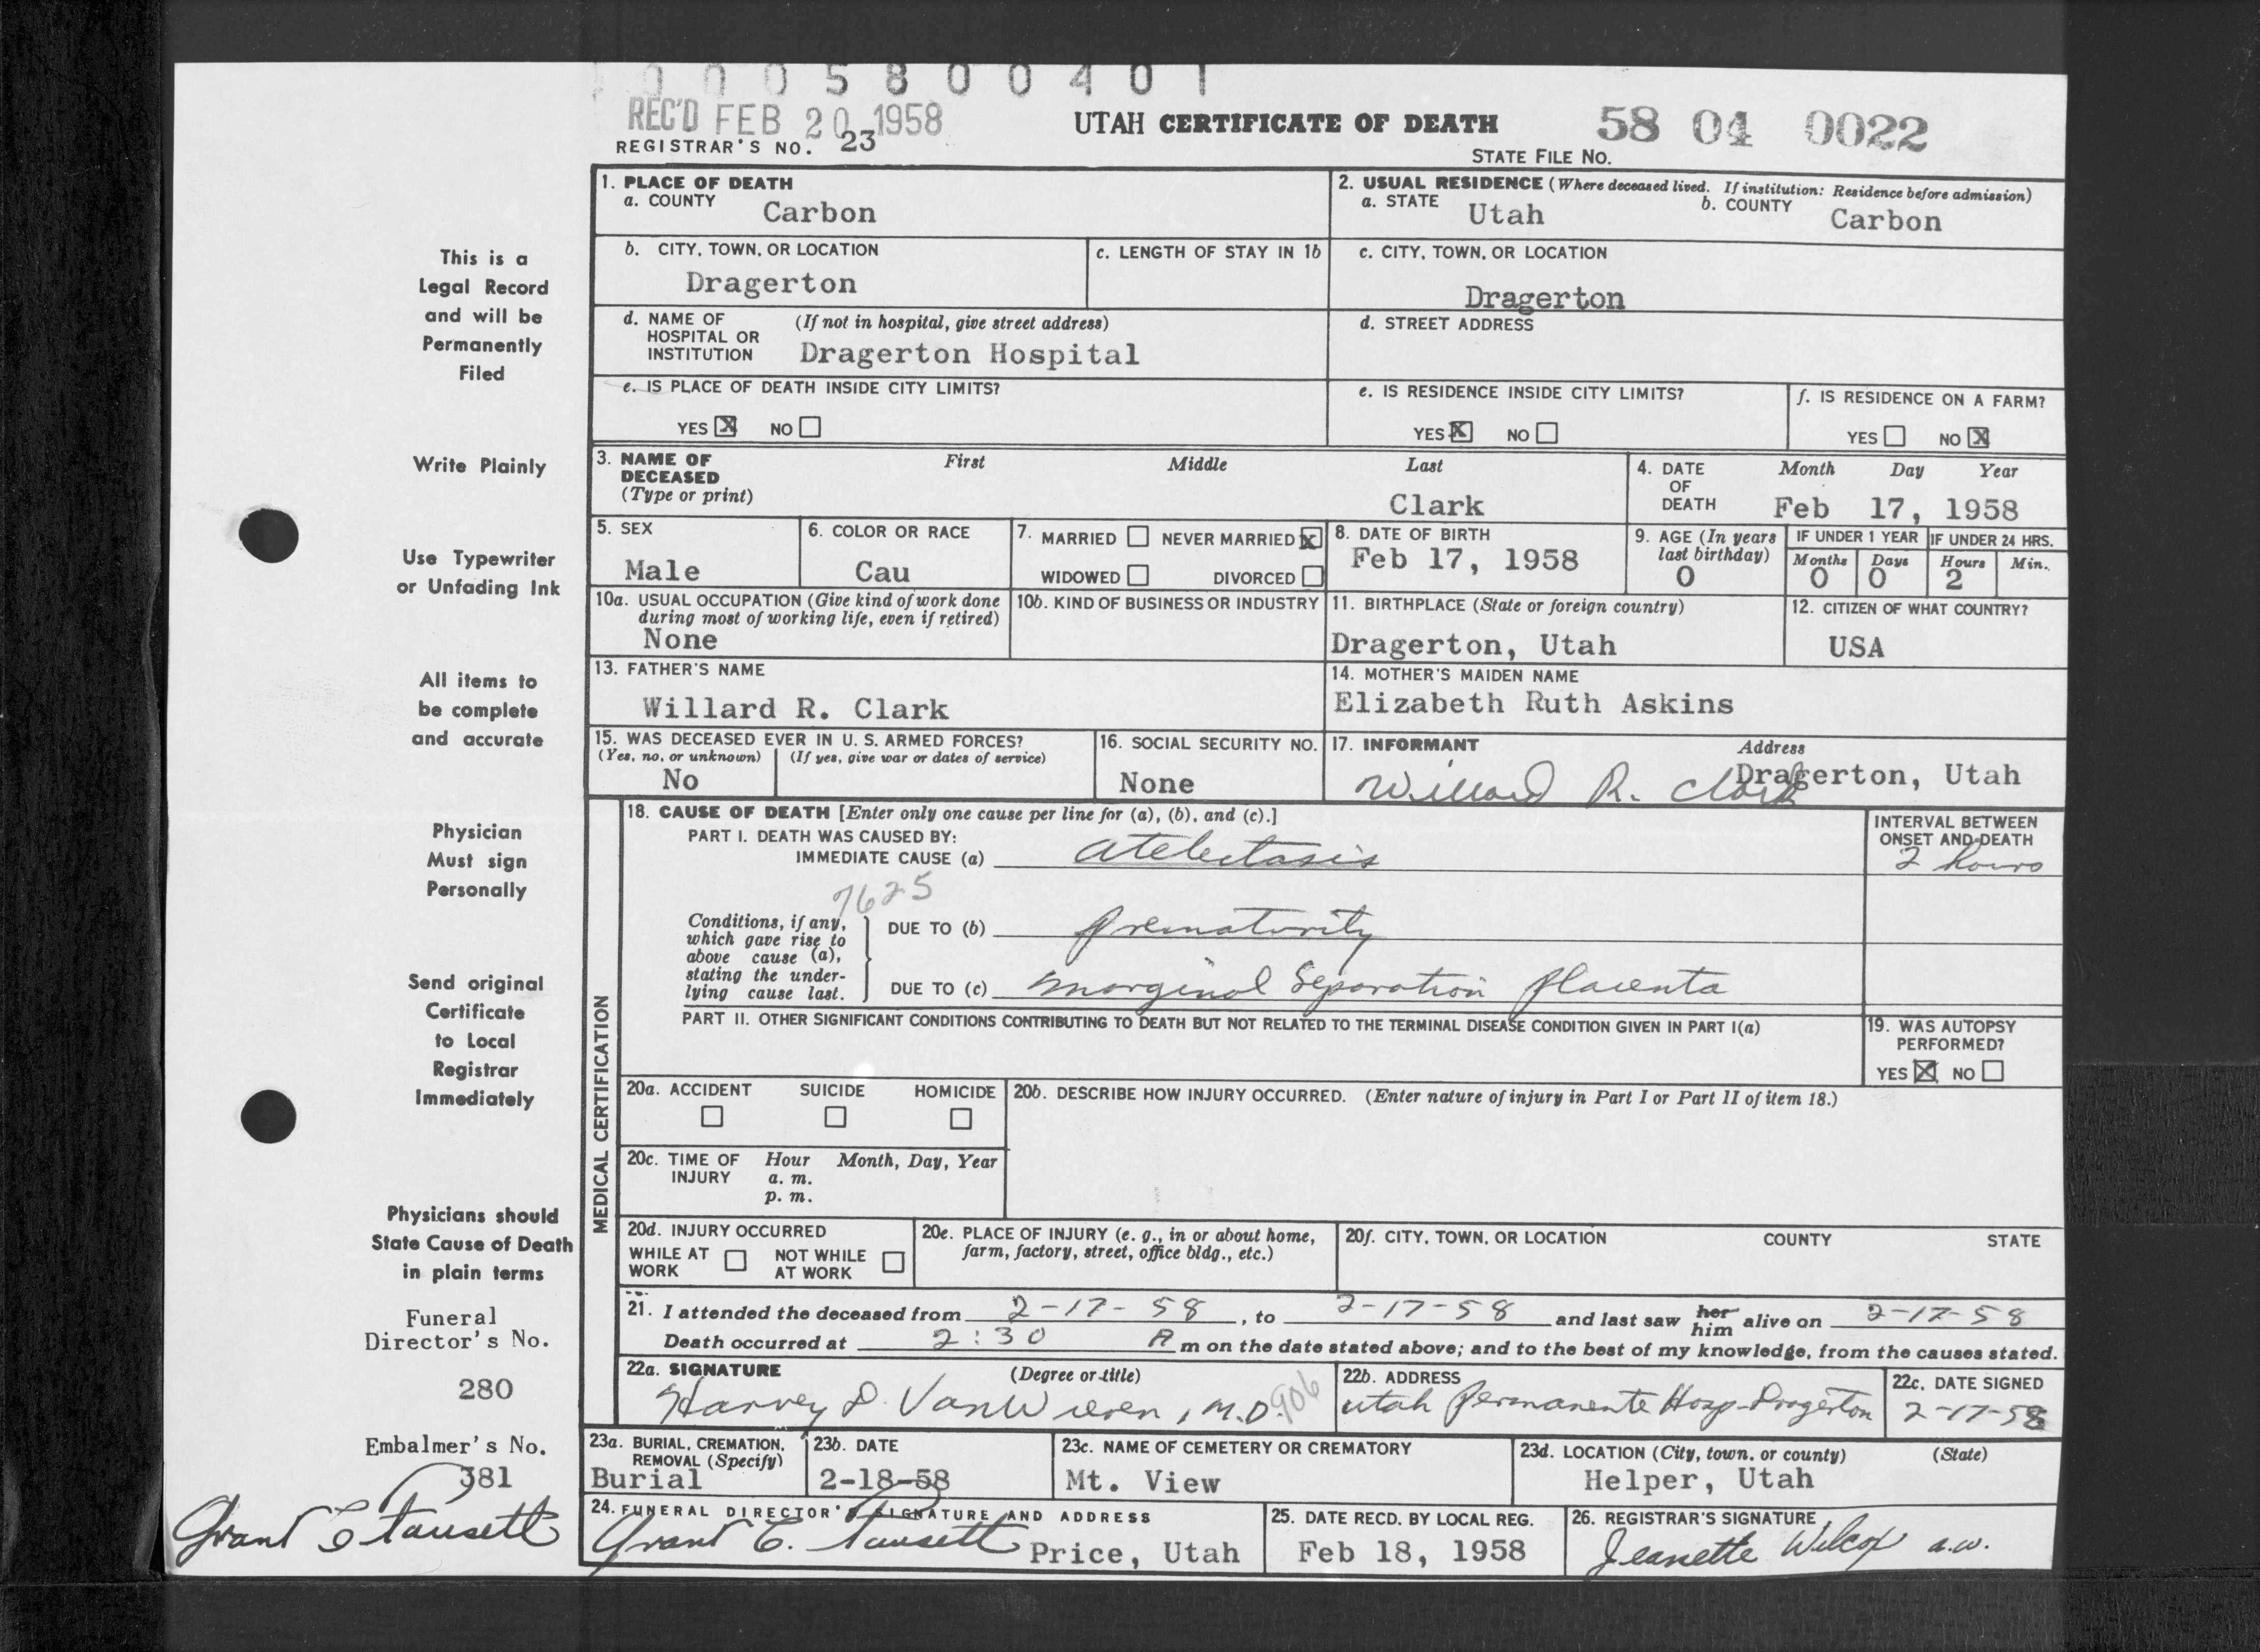 0 0 0 5 8 0 0 4 0 1
REC'D FEB 20 1958
UTAH CERTIFICATE OF DEATH
58 04 0022
REGISTRAR'S NO. 23
STATE FILE NO.
1. PLACE OF DEATH
a. COUNTY Carbon
2. USUAL RESIDENCE (Where deceased lived. If institution: Residence before admission)
a. STATE Utah b. COUNTY Carbon
b. CITY, TOWN, OR LOCATION
Dragerton
c. LENGTH OF STAY IN 1b
c. CITY, TOWN, OR LOCATION
Dragerton
d. NAME OF HOSPITAL OR INSTITUTION (If not in hospital, give street address)
Dragerton Hospital
d. STREET ADDRESS
e. IS PLACE OF DEATH INSIDE CITY LIMITS?
YES X NO
e. IS RESIDENCE INSIDE CITY LIMITS?
YES X NO
f. IS RESIDENCE ON A FARM?
YES NO X
3. NAME OF DECEASED (Type or print)
First Middle Last
Clark
4. DATE OF DEATH Month Day Year
Feb 17, 1958
5. SEX
Male
6. COLOR OR RACE
Cau
7. MARRIED NEVER MARRIED X
WIDOWED DIVORCED
8. DATE OF BIRTH
Feb 17, 1958
9. AGE (In years last birthday)
0
IF UNDER 1 YEAR
Months Days
0 0
IF UNDER 24 HRS.
Hours Min.
2
10a. USUAL OCCUPATION (Give kind of work done during most of working life, even if retired)
None
10b. KIND OF BUSINESS OR INDUSTRY
11. BIRTHPLACE (State or foreign country)
Dragerton, Utah
12. CITIZEN OF WHAT COUNTRY?
USA
13. FATHER'S NAME
Willard R. Clark
14. MOTHER'S MAIDEN NAME
Elizabeth Ruth Askins
15. WAS DECEASED EVER IN U. S. ARMED FORCES?
(Yes, no, or unknown) (If yes, give war or dates of service)
No
16. SOCIAL SECURITY NO.
None
17. INFORMANT Address
Willard R. Clark Dragerton, Utah
MEDICAL CERTIFICATION
18. CAUSE OF DEATH [Enter only one cause per line for (a), (b), and (c).]
PART I. DEATH WAS CAUSED BY:
IMMEDIATE CAUSE (a) atelectasis
INTERVAL BETWEEN ONSET AND DEATH
2 hours
7625
Conditions, if any, which gave rise to above cause (a), stating the underlying cause last.
DUE TO (b) prematurity
DUE TO (c) marginal Separation placenta
PART II. OTHER SIGNIFICANT CONDITIONS CONTRIBUTING TO DEATH BUT NOT RELATED TO THE TERMINAL DISEASE CONDITION GIVEN IN PART I(a)
19. WAS AUTOPSY PERFORMED?
YES X NO
20a. ACCIDENT SUICIDE HOMICIDE
20b. DESCRIBE HOW INJURY OCCURRED. (Enter nature of injury in Part I or Part II of item 18.)
20c. TIME OF INJURY Hour Month, Day, Year
a. m.
p. m.
20d. INJURY OCCURRED
WHILE AT WORK NOT WHILE AT WORK
20e. PLACE OF INJURY (e. g., in or about home, farm, factory, street, office bldg., etc.)
20f. CITY, TOWN, OR LOCATION COUNTY STATE
21. I attended the deceased from 2-17-58, to 2-17-58 and last saw her him alive on 2-17-58
Death occurred at 2:30 A m on the date stated above; and to the best of my knowledge, from the causes stated.
22a. SIGNATURE (Degree or title)
Harvey D. VanWieren, M.D. 906
22b. ADDRESS
Utah Permanente Hosp-Dragerton
22c. DATE SIGNED
2-17-58
23a. BURIAL, CREMATION, REMOVAL (Specify)
Burial
23b. DATE
2-18-58
23c. NAME OF CEMETERY OR CREMATORY
Mt. View
23d. LOCATION (City, town, or county) (State)
Helper, Utah
24. FUNERAL DIRECTOR'S SIGNATURE AND ADDRESS
Grant C. Fausett Price, Utah
25. DATE RECD. BY LOCAL REG.
Feb 18, 1958
26. REGISTRAR'S SIGNATURE
Jeanette Wilcox a.w.
This is a
Legal Record
and will be
Permanently
Filed
Write Plainly
Use Typewriter
or Unfading Ink
All items to
be complete
and accurate
Physician
Must sign
Personally
Send original
Certificate
to Local
Registrar
Immediately
Physicians should
State Cause of Death
in plain terms
Funeral
Director's No.
280
Embalmer's No.
381
Grant C Fausett